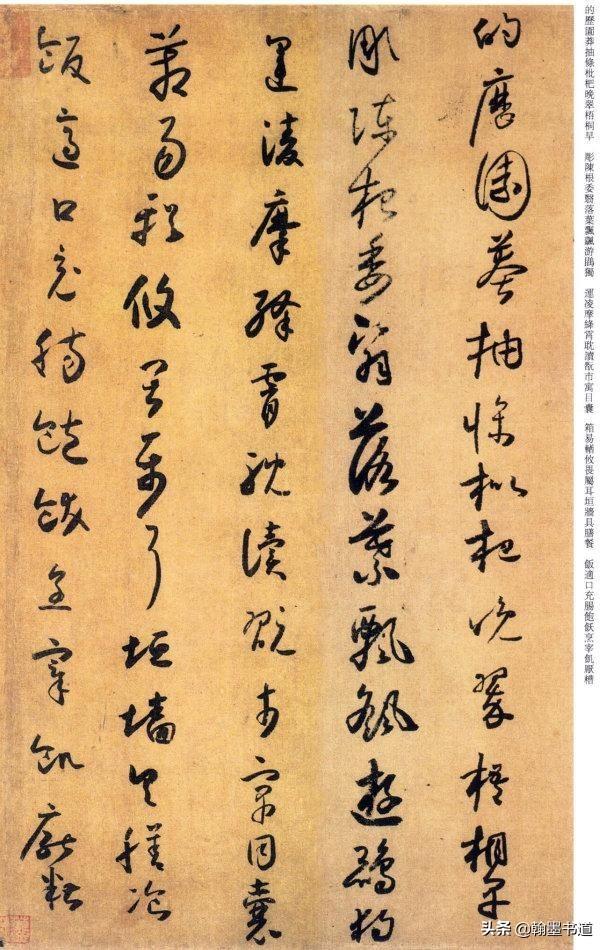 的歷園莽抽條枇杷晚翠梧桐早　彫陳根委翳落葉飄颻游鵾獨　運凌摩絳霄耽讀翫市寓目囊　箱易輶攸畏屬耳垣牆具膳餐　飯適口充腸飽飫烹宰飢厭糟
的歷園莽抽條枇杷晚翠梧桐早
彫陳根委翳落葉飄颻遊鵾獨
運凌摩絳霄耽讀翫市寓目囊
箱易輶攸畏屬耳垣墻具膳飡
飯適口充腸飽飫烹宰飢厭糟
头条 @翰墨书道